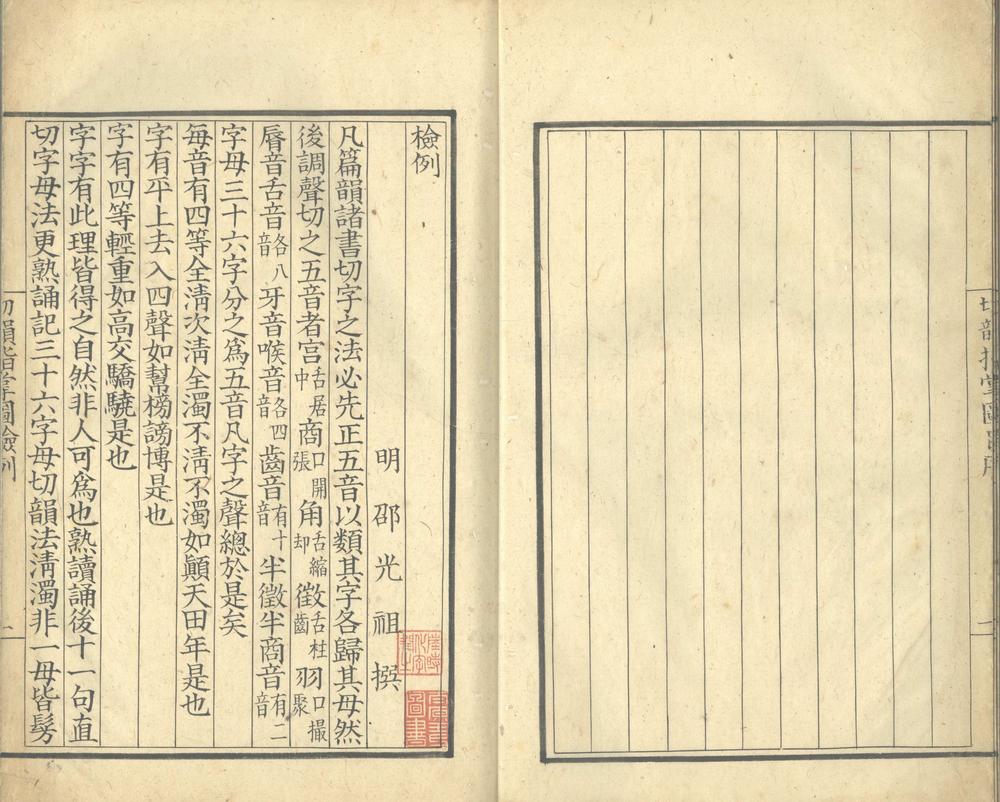 檢例
明邵光祖撰
凡篇韻諸書切字之法必先正五音以類其字各歸其母然
後調聲切之五音者宮舌居中商口開張角舌縮却徵舌柱齒羽口撮聚
脣音舌音各八音牙音喉音各四音齒音有十音半徵半商音有二音
字母三十六字分之為五音凡字之聲總於是矣
每音有四等全清次清全濁不清不濁如顚天田年是也
字有平上去入四聲如幫榜謗博是也
字有四等輕重如高交驕驍是也
字字有此理皆得之自然非人可為也熟讀誦後十一句直
切字母法更熟誦記三十六字母切韻法清濁非一母皆髣
切韻指掌圖檢例
一
圖書